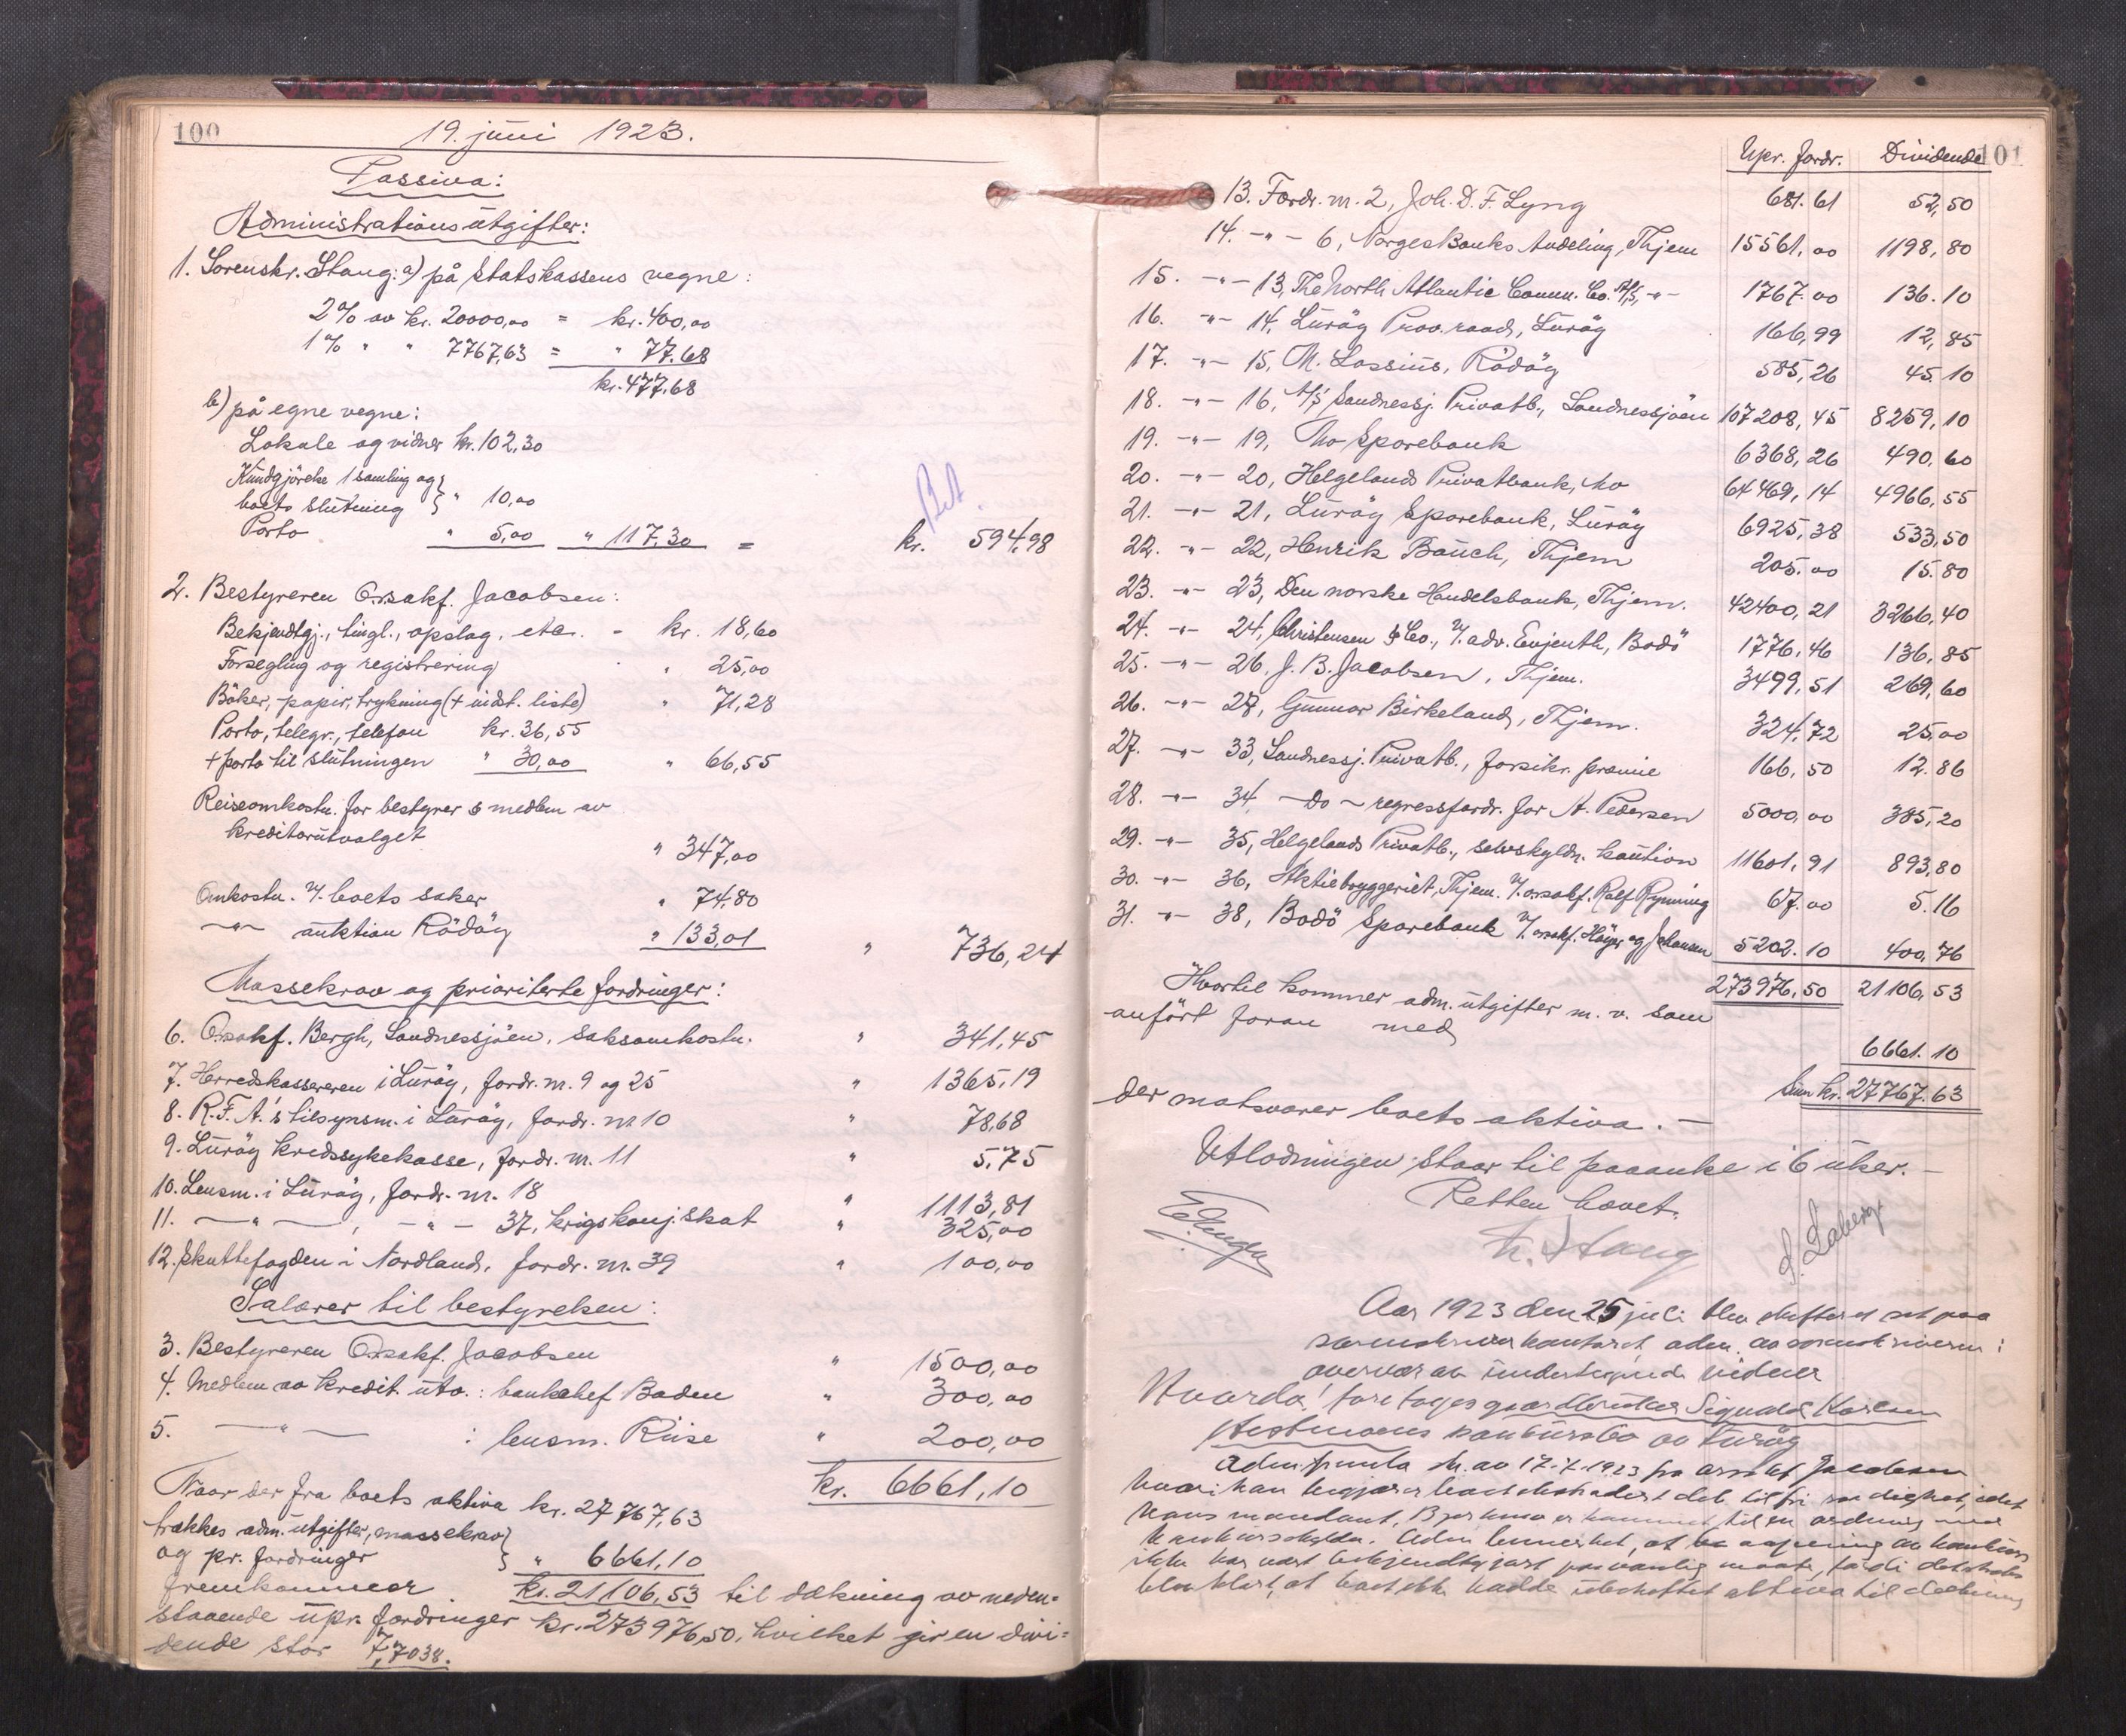 100
19. juni 1923.
Passiva:
Administrationsutgifter:
1. Sorenskr. Stang: a) på Statskassens vegne:
2% av kr. 20000,00 = kr. 400,00
1% " " 7767,63 = " 77.68
kr. 477,68
b) på egne vegne:
Lokale og vidner kr. 102,30
Kundgjörelse 1 samling og
boets slutning } " 10,00
Porto " 5,00 " 117,30 = kr. 594,98
Bet.
2. Bestyreren O.rsakf. Jacobsen:
Bekjendtgj., tingl., opslag, etc. - kr. 18,60
Forsegling og registrering " 25,00
Böker, papir, trykning (+ indt. liste) " 71,28
Porto, telegr., telefon kr. 36,55
+ porto til slutningen " 30,00 " 66,55
Reiseomkostn. for bestyrer & medlem av
kreditorutvalget " 347,00
Omkostn. v/ boets saker " 74,80
—"— auktion Rödöy " 133,01 " 736,24
Massekrav og prioriterte fordringer:
6. O.rsakf. Bergh, Sandnessjöen, saksomkostn. " 341,45
7. Herredskassereren i Luröy, fordr. nr. 9 og 25 " 1365,19
8. R.F.A.'s tilsynsm. i Luröy, fordr. nr. 10 " 78,68
9. Luröy kredssykekasse, fordr. nr. 11 " 5,75
10. Lensm. i Luröy, fordr. nr. 18 " 1113,81
11. —"—, —"— 37, krigskonj.skat " 325,00
12. Skattefogden i Nordland, fordr. nr. 39 " 100,00
Salærer til bestyrelsen:
3. Bestyreren O.rsakf. Jacobsen " 1500,00
4. Medlem av kredit. utv.: bankchef Baden " 300,00
5. —"— : lensm. Riise " 200,00
kr. 6661,10
Naar der fra boets aktiva kr. 27767,63
trækkes adm. utgifter, massekrav
og pr. fordringer } " 6661,10
fremkommer kr. 21106,53 til dækning av neden=
staaende upr. fordringer kr. 273976,50, hvilket gir en divi=
dende stor 7,7038.
101
Upr. fordr. Dividende
13. Fordr. nr. 2, Joh. D. F. Lyng 681.61 52,50
14. -"- 6, Norges Banks Avdeling, Thjem 15561,00 1198,80
15. -"- 13, The North Atlantic Comm. Co. A/S, -"- 1767.00 136.10
16. -"- 14, Luröy Prov.raad, Luröy 166,99 12,85
17. -"- 15, M. Lossius, Rödöy 585,26 45.10
18. -"- 16, A/S Sandnessj. Privatb., Sandnessjöen 107208,45 8259,10
19. -"- 19, Mo Sparebank 6368,26 490,60
20. -"- 20, Helgelands Privatbank, Mo 64469,14 4966,55
21. -"- 21, Luröy Sparebank, Luröy 6925,38 533,50
22. -"- 22, Henrik Bauch, Thjem 205.00 15.80
23. -"- 23, Den norske Handelsbank, Thjem. 42400,21 3266,40
24. -"- 24, Christensen & Co., v/ adv. Evjenth, Bodö 1776,46 136,85
25. -"- 26, J. B. Jacobsen, Thjem. 3499,51 269,60
26. -"- 27, Gunnar Birkeland, Thjem. 324,72 25,00
27. -"- 33, Sandnessj. Privatb., forsikr. præmie 166,50 12.86
28. -"- 34 -Do- regressfordr. for A. Pedersen 5000,00 385,20
29. -"- 35, Helgelands Privatb., selvskyldn. kaution 11601,91 893,80
30. -"- 36, Aktiebryggeriet, Thjem. v/ orsakf. Rolf Rynning 67.00 5.16
31. -"- 38, Bodö Sparebank v/ orsakf. Höyer og Johansen 5202.10 400,76
273976,50 21106,53
Hvortil kommer adm. utgifter m. v. som
anfört foran med 6661.10
Sum kr. 27767.63
der motsvarer boets aktiva. —
Utlodningen staar til paaanke i 6 uker. —
Retten hævet.
N. Stang
Aar 1923 den 25 juli blev skifteret sat paa
sorenskriverkontoret, adm. av sorenskriveren i
overvær av undertegnede vidner
Hvorda: foretoges gaardbruker Sigvald Karlsen
konkursbo av Luröy
Adm. fremla skr. av 17-7-1923 fra orsakf Jacobsen
hvori han begjærer boet tilbakelevert til fri raadighet, idet
hans mandant, er kommet til en ordning med
Adm. bemerket, at aapning av konkurs
ikke har vært bekjendtgjort paa vanlig maate, fordi det straks
blev klart, at boet ikke hadde aktiva til dækning